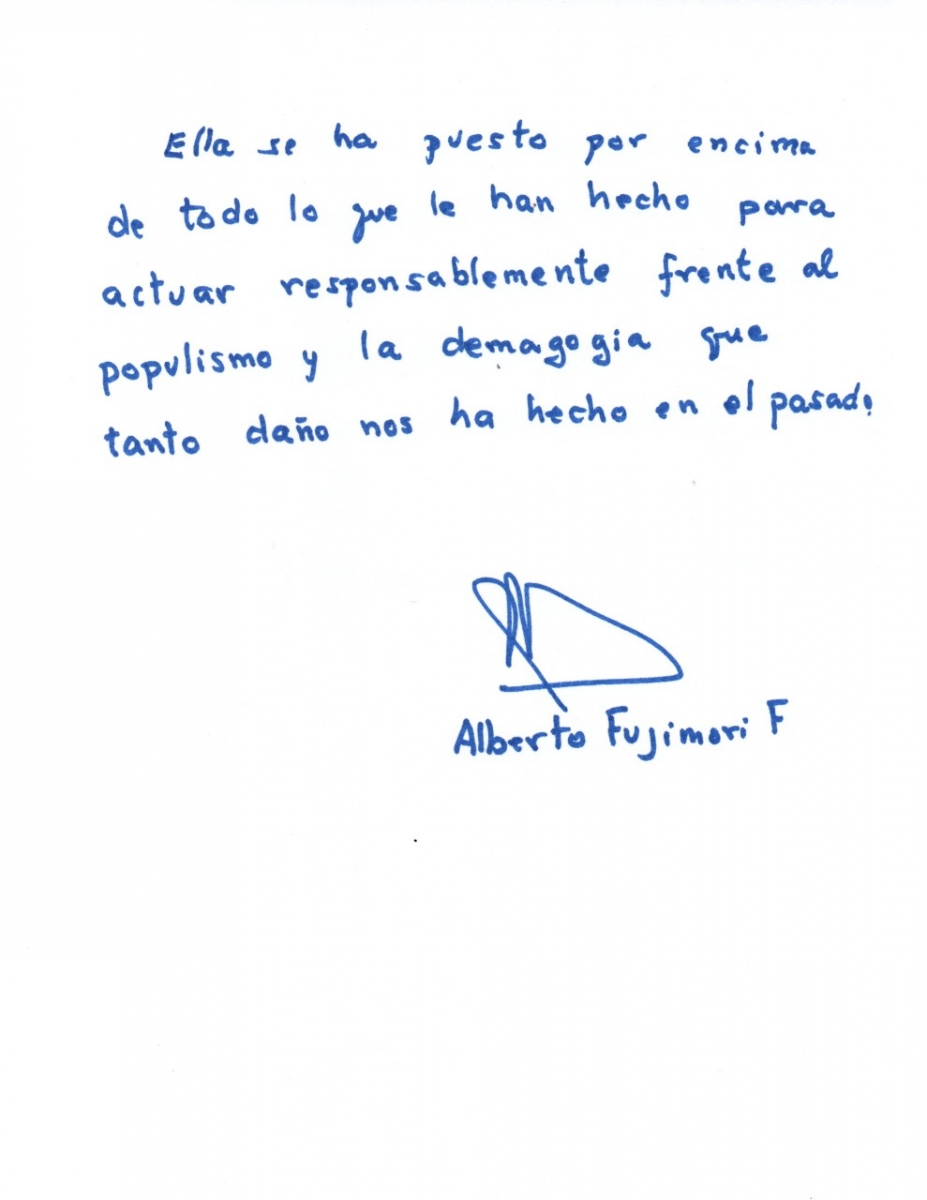 Ella se ha puesto por encima
de todo lo que le han hecho para
actuar responsablemente frente al
populismo y la demagogia que
tanto daño nos ha hecho en el pasado.
Alberto Fujimori F